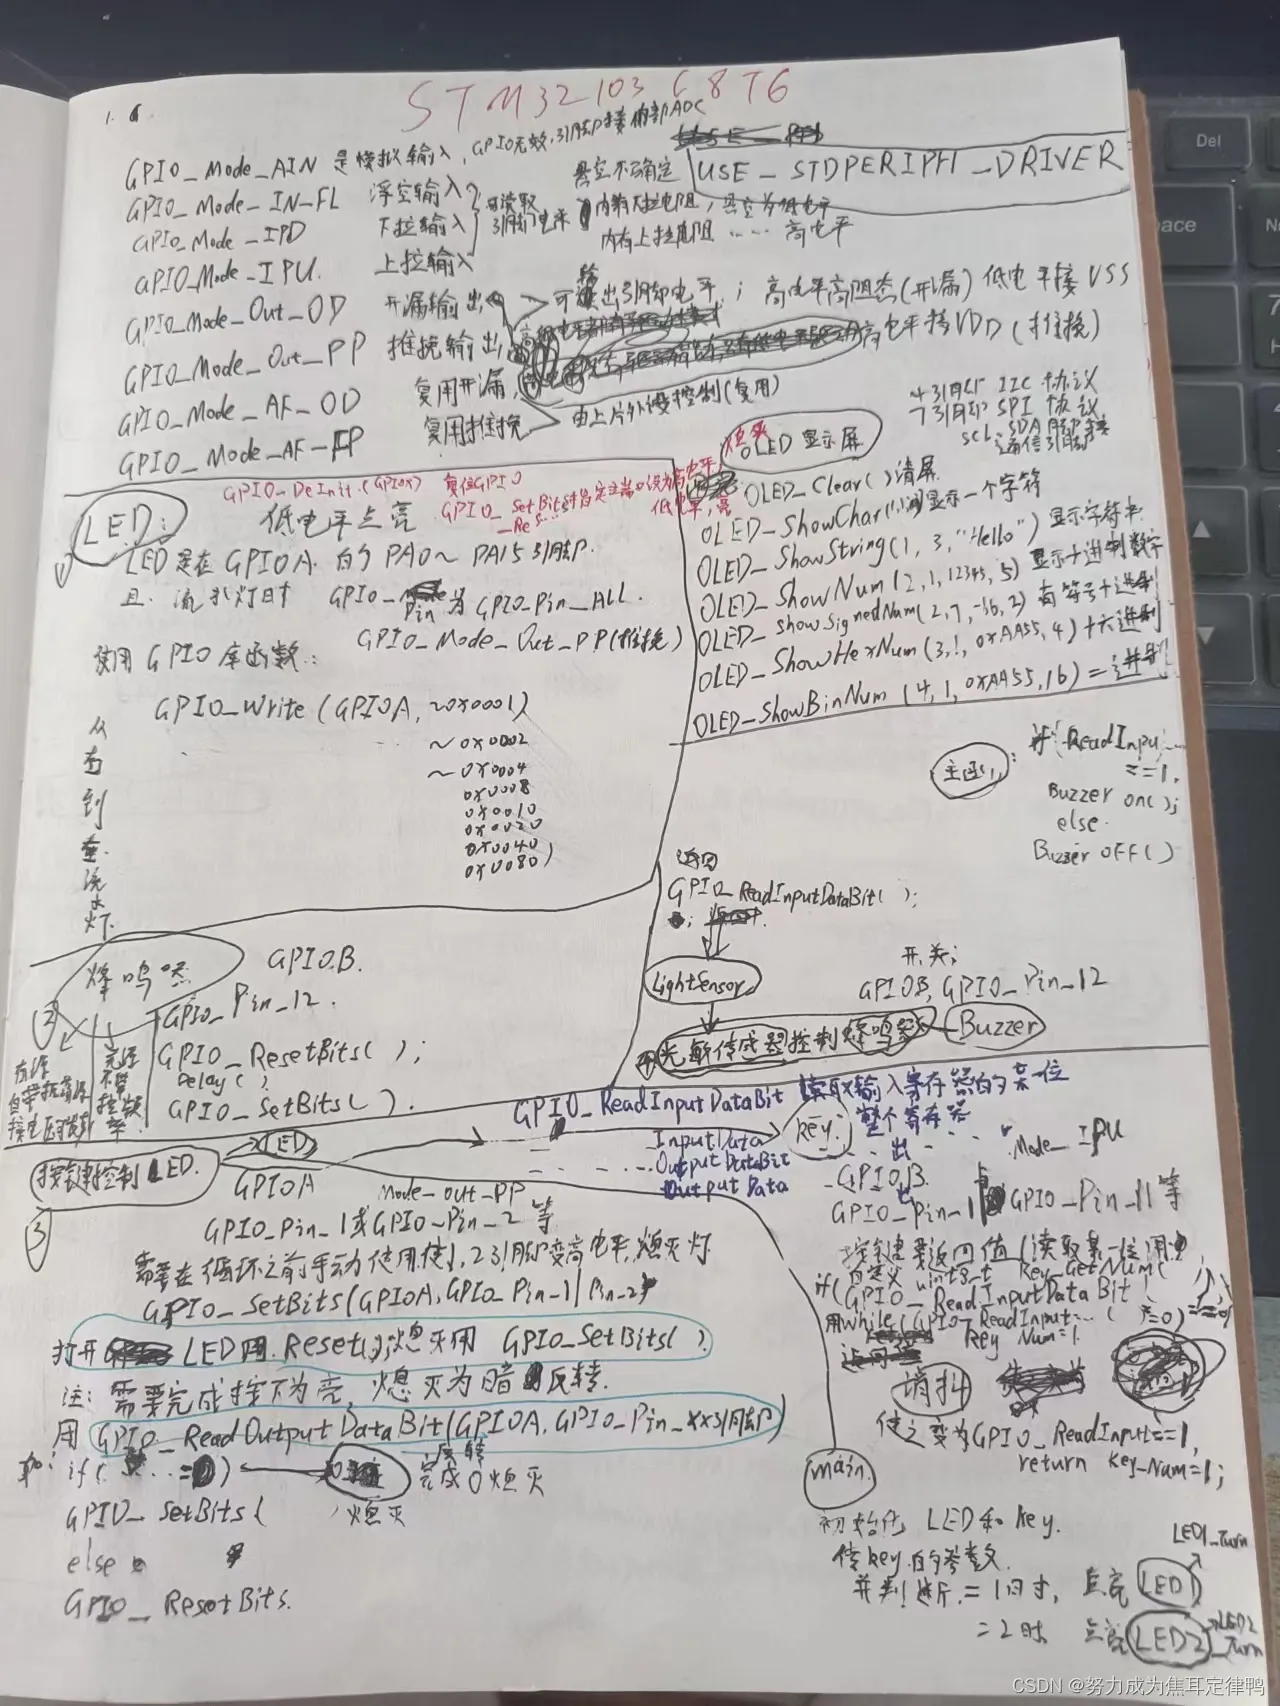 STM32103C8T6
1.
GPIO_Mode_AIN 是模拟输入, GPIO无效,引脚接内部ADC
USE_STDPERIPH_DRIVER
GPIO_Mode_IN_FL 浮空输入 可读取引脚电平 悬空不确定
GPIO_Mode_IPD 下拉输入 内有下拉电阻, 悬空为低电平
GPIO_Mode_IPU. 上拉输入 内有上拉电阻 …… 高电平
GPIO_Mode_Out_OD 开漏输出 可输出引脚电平; 高电平高阻态(开漏) 低电平接VSS
GPIO_Mode_Out_PP 推挽输出, 高电平接VDD(推挽)
GPIO_Mode_AF_OD 复用开漏,
GPIO_Mode_AF_PP 复用推挽 由上片外设控制(复用)
4引脚 IIC 协议
7引脚 SPI 协议
SCL SDA 脚接
通信引脚
OLED 显示屏
OLED_Clear()清屏
OLED_ShowChar( )显示一个字符
OLED_ShowString(1, 3, "Hello") 显示字符串
OLED_ShowNum(2,1,12345,5) 显示十进制数字
OLED_ShowSignedNum(2,7,-66,2) 有符号十进制
OLED_ShowHexNum(3,1,0xAA55,4) 十六进制
OLED_ShowBinNum(4,1,0xAA55,16) 二进制
GPIO_DeInit.(GPIOx) 复位GPIO
GPIO_SetBits 指定主端口设为高电平,
_Res… 低电平,亮
LED: 低电平点亮
LED是在GPIOA 的 PA0~PA15引脚.
且.流水灯时 GPIO_Pin 为 GPIO_Pin_ALL.
GPIO_Mode_Out_PP(推挽)
使用GPIO库函数:
GPIO_Write(GPIOA, ~0x0001)
~0x0002
~0x0004
0x0008
0x0010
0x0020
0x0040
0x0080)
从右到左流水灯.
主函:
if(ReadInpu…
==1.
Buzzer on();
else.
Buzzer OFF()
返回
GPIO_ReadInputDataBit();
LightSensor
开关;
GPIOB, GPIO_Pin_12
光敏传感器控制蜂鸣器 Buzzer
2
蜂鸣器 GPIOB.
GPIO_Pin_12.
GPIO_ResetBits();
Delay()
GPIO_SetBits().
有源
自带振荡源
无源
不带
3
按键控制LED.
LED
GPIOA
Mode_out_PP
GPIO_Pin_1或GPIO_Pin_2等
需要在循环之前手动使用使1,2引脚变高电平,熄灭灯
GPIO_SetBits(GPIOA,GPIO_Pin_1|Pin_2)
打开 LED用.Reset();熄灭用 GPIO_SetBits().
注: 需要完成按下为亮, 熄灭为暗 反转.
用 GPIO_ReadOutputDataBit(GPIOA,GPIO_Pin_xx引脚)
如: if( …==0) 反转
完成0熄灭
GPIO_SetBits( 熄灭
else
GPIO_ResetBits.
GPIO_ReadInputDataBit 读取输入寄存器的某一位
InputData 整个寄存器
OutputDataBit 出
OutputData
Key.
Mode_IPU
GPIOB.
GPIO_Pin_1 GPIO_Pin_11等
按键要返回值
自定义 uint8_t Key_GetNum(
if(GPIO_ReadInputDataBit
用while(GPIO_ReadInput…( ==0)
Key Num=1.
消抖
使之变为GPIO_ReadInput==1,
return Key_Num=1;
main.
初始化 LED和key.
传key的参数.
并判断.=1时, 点亮 LED1
LED1_Turn
=2时. 点亮 LED2
LED2_Turn
CSDN @努力成为焦耳定律鸭